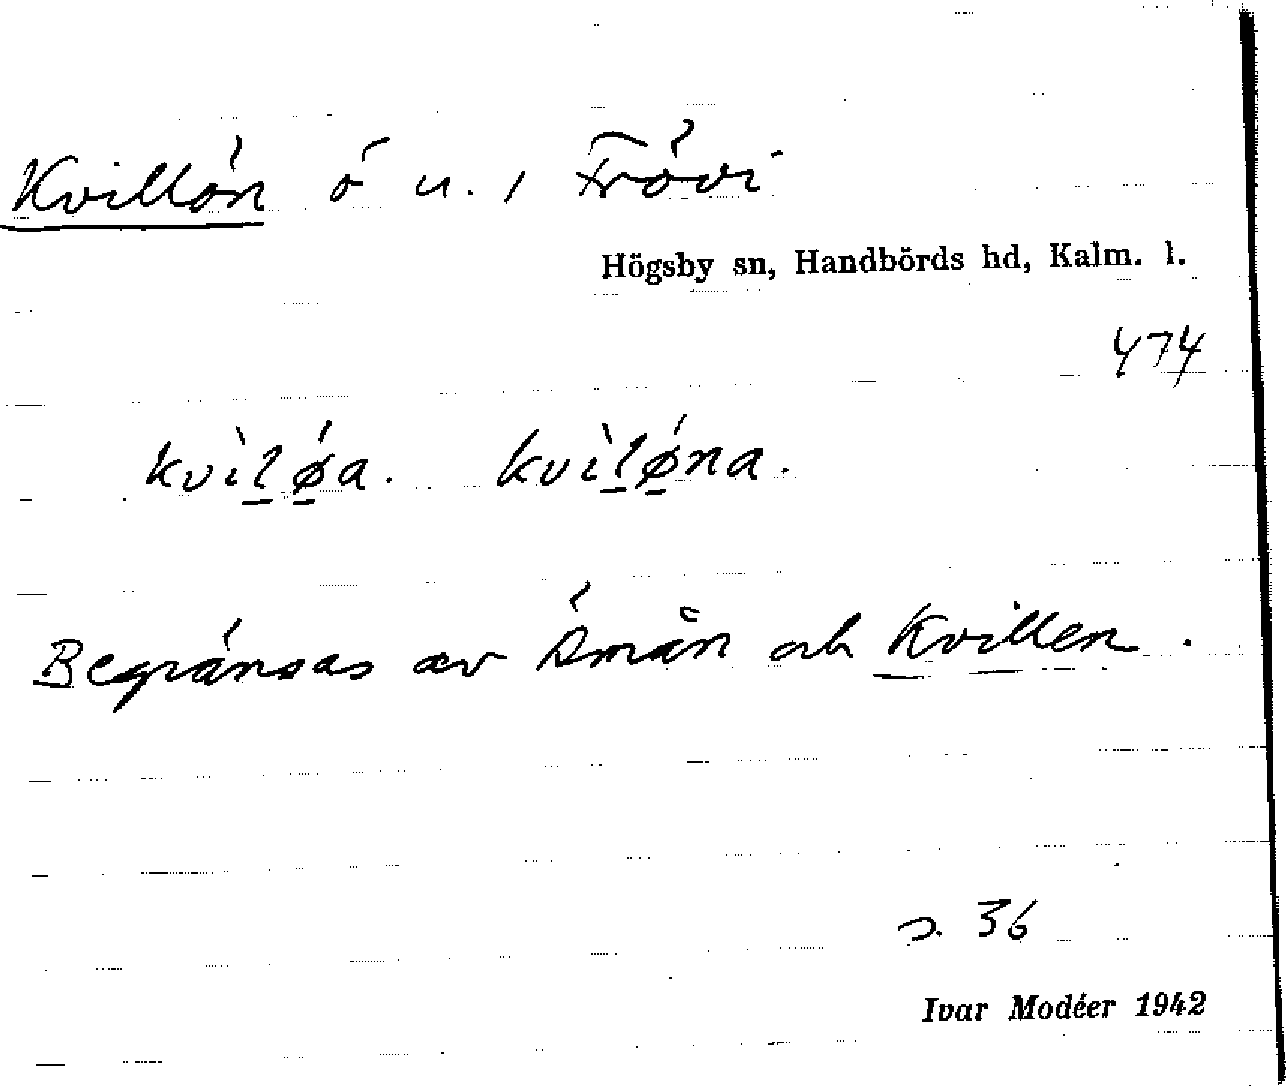 Kvillön ö u. Frövi
Högsby sn, Handbörds hd, Kalm. l.
474
kvìḻǿ̱a. kvìḻǿ̱na.
Begränsas av Åmån och Kvillen.
s. 36
Ivar Modéer 1942